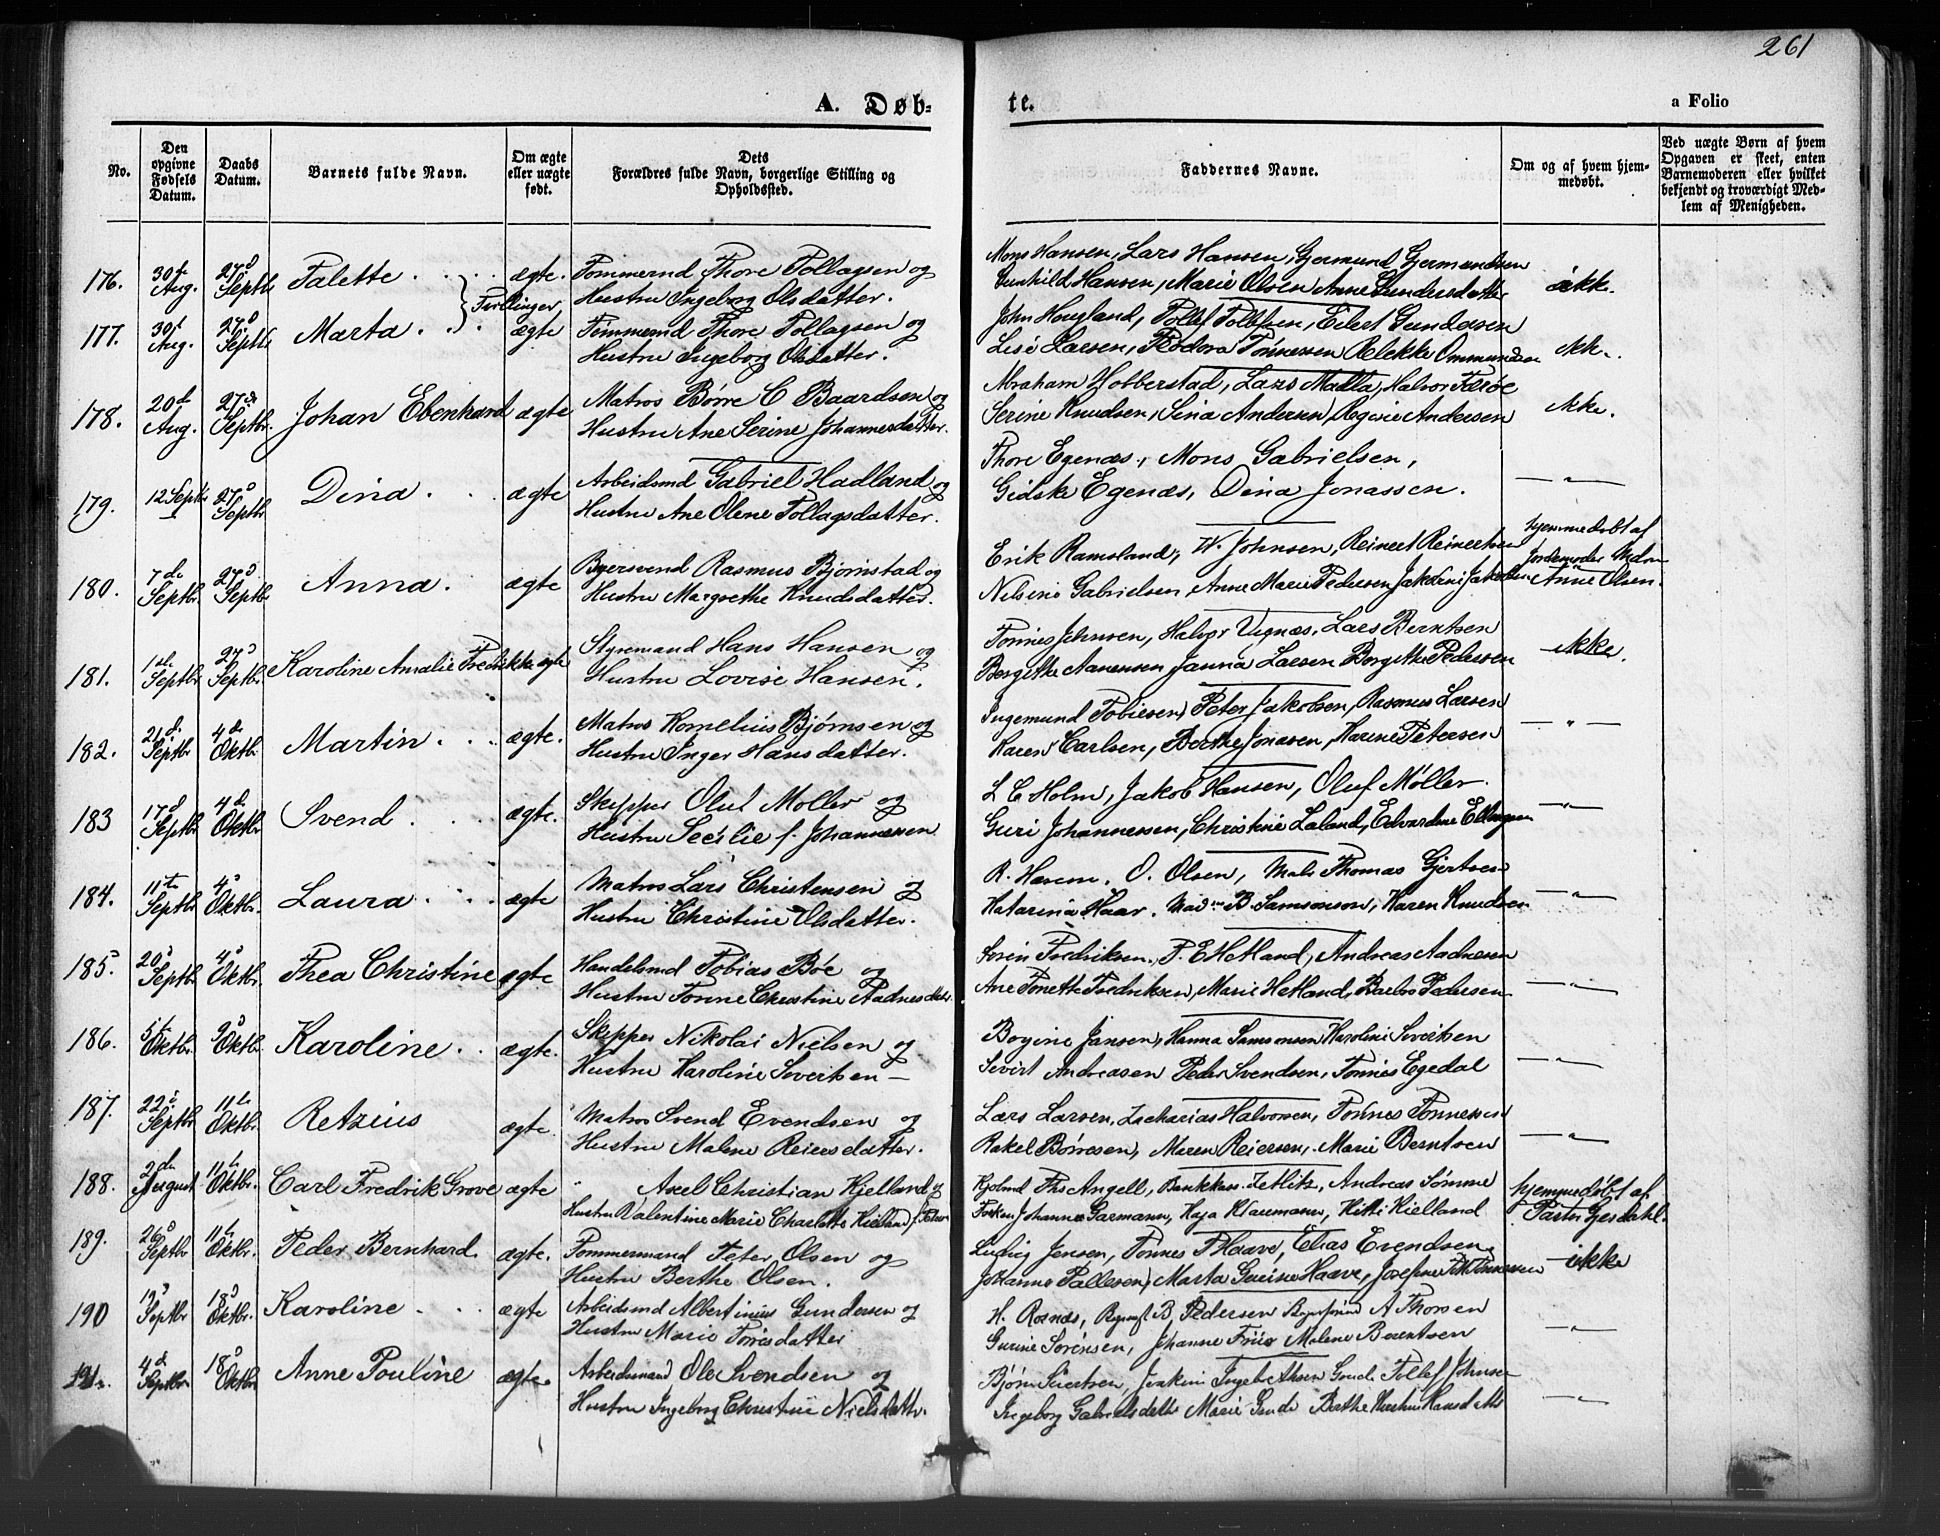 261
A. Døb-
te.
a Folio
No.
Den opgivne Fødsels Datum.
Daabs Datum.
Barnets fulde Navn.
Om ægte eller uægte født.
Dets Forældres fulde Navn, borgerlige Stilling og Opholdssted.
Faddernes Navne.
Om og af hvem hjem-
medøbt.
Ved uægte Børn af hvem
Opgaven er skeet, enten
Barnemoderen eller hvilket
bekjendt og troværdigt Med-
lem af Menigheden.
176. 30te Aug. 27d Septbr Talette Tvillinger ægte. Tømmermd Thore Tollagsen og
Hustru Ingeborg Olsdatter.
Mons Hansen, Lars Hansen, Gjermund Gjermundsen
Gunhild Hansen, Marie Olsen Anne Gundersdatter ikke.
177. 30t Aug. 27d Septbr Marta ægte Tømmermd Thore Tollagsen og
Hustru Ingeborg Olsdatter.
John Hougland, Tollef Tollefsen, Eilert Gundersen
Lise Larsen, Teodora Tønnessen Ommundsen ikke.
178. 20de Aug. 27de Septbr. Johan Ebenhard ægte Matros Børre C Baardsen og
Hustru Ane Serine Johannesdatter.
Abraham Hobberstad, Lars Malla, Halvor Færøe
Serine Knudsen, Sina Andersen, Regine Andersen ikke.
179. 12 Septbr 27d Septbr Dina ægte Arbeidsmd Gabriel Hadland og
Hustru Ane Olene Tollagsdatter.
Thore Egenæs, Mons Gabrielsen,
Gidske Egenæs, Dina Jonassen. — " —
180. 7de Septbr. 27d Septbr Anna ægte Rasmus Bjørnstad og
Hustru Margrethe Knudsdatter.
Erik Ramsland, W. Johnsen, Reinert Reinertsen
Nilsine Gabrielsen, Anne Marie Pedersen, Jakobine Jakobsen
hjemmedøbt af
Jordemoder Mdm
Anne Olsen.
181. 1ste Septbr 27d Septbr. Karoline Amalie Fredrikke ægte Styrmand Hans Hansen og
Hustru Lovise Hansen.
Tønnes Johnsen, Halvor Vignæs, Lars Berntsen
Bergitte Aanensen Janna Larsen Borgitte Pedersen ikke.
182. 21d Septbr 4de Oktbr. Martin ægte. Matros Kornelius Bjørnsen og
Hustru Inger Hansdatter.
Ingemund Tobiesen, Peter Jakobsen, Rasmus Larsen
Karen Carlsen, Berthe Jonasen, Karine Petersen — " —
183 17d Septbr 4de Oktbr Svend ægte. Skipper Oluf Møller og
Hustru Secelie f. Johannessen
L C Holm, Jakob Hansen, Oluf Møller.
Guri Johannessen, Christine Laland, Edvardine Ellingsen — " —
184. 11te Septbr 4d Oktbr. Laura ægte Matros Lars Christensen og
Hustru Christine Olsdatter.
O. Olsen, Thomas Gjertsen
Katarina Haar, Madm B. Samsonson, Karen Knudsen — " —
185. 20d Septbr 4d Oktbr. Thea Christine ægte Handelsmd Tobias Bøe og
Hustru Tonne Christine Aadnesdatr.
Søren Fredriksen, P. E Hetland, Andreas Aadnesen
Ane Tonette Fredriksen, Marie Hetland, Barbro Pedersen — " —
186. 5te Oktbr. 9d Oktbr. Karoline ægte. Skipper Nikolai Nielsen og
Hustru Karoline Sivertsen —
Borgine Jansen, Hanna Samsonsen Karoline Sivertsen
Sivert Andreasen Peder Svendsen, Tønnes Egedal — " —
187. 22d Septbr 11te Oktbr. Retzius ægte. Matros Svend Evendsen og
Hustru Malene Reiersdatter.
Lars Larsen, Zacharias Halvorsen, Tønnes Tønnessen
Rakel Børresen, Maren Reiersen, Marie Berntsen — " —
188. 2de August 11te Oktbr. Carl Fredrik Grove ægte " Axel Christian Kjelland og
Hustru Valentine Marie Charlotte Kielland f.
Kjøbmd Ths Angell, Zetlitz, Andreas Sømme
Frøken Johanne Garmann, Kaja Klaumann, Kitti Kielland
hjemmedøbt af
Pastor Gjesdahl.
189. 26d Septbr 11te Oktbr. Peder Bernhard. ægte. Tømmermand Peter Olsen og
Hustru Berthe Olsen.
Ludvig Jensen, Tønnes T Haave, Elias Evendsen
Johanne Pallesen, Marta Gurine Haave, Josefine Tønnessen ikke
190 19d Septbr 18d Oktbr. Karoline ægte Arbeidsmd Albertinius Gundersen og
Hustru Marie Torisdatter
H. Rosnæs, B. Pedersen A Thorsen
Gurine Sørensen, Johanne Friis Malene Berentsen — " —
191. 4de Septbr 18d Oktbr Anne Pouline ægte. Arbeidsmand Ole Svendsen og
Hustru Ingeborg Christine Nielsdattr.
Bjørn Sivertsen, Joakim Tollef Johnsen
Ingeborg Gabrielsdatter Marie Berthe Hansdattr — " —